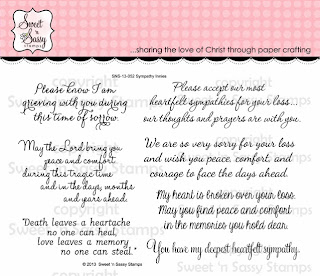 Sweet 'n Sassy
stamps
...sharing the love of Christ through paper crafting
SNS-13-052 Sympathy Innies
Please know I am
grieving with you during
this time of sorrow.
May the Lord bring you
peace and comfort
during this tragic time
and in the days, months
and years ahead.
"Death leaves a heartache
no one can heal,
love leaves a memory
no one can steal."
© 2013 Sweet 'n Sassy Stamps
Please accept our most
heartfelt sympathies for your loss...
our thoughts and prayers are with you.
We are so very sorry for your loss
and wish you peace, comfort, and
courage to face the days ahead.
My heart is broken over your loss.
May you find peace and comfort
in the memories you hold dear.
You have my deepest heartfelt sympathy.